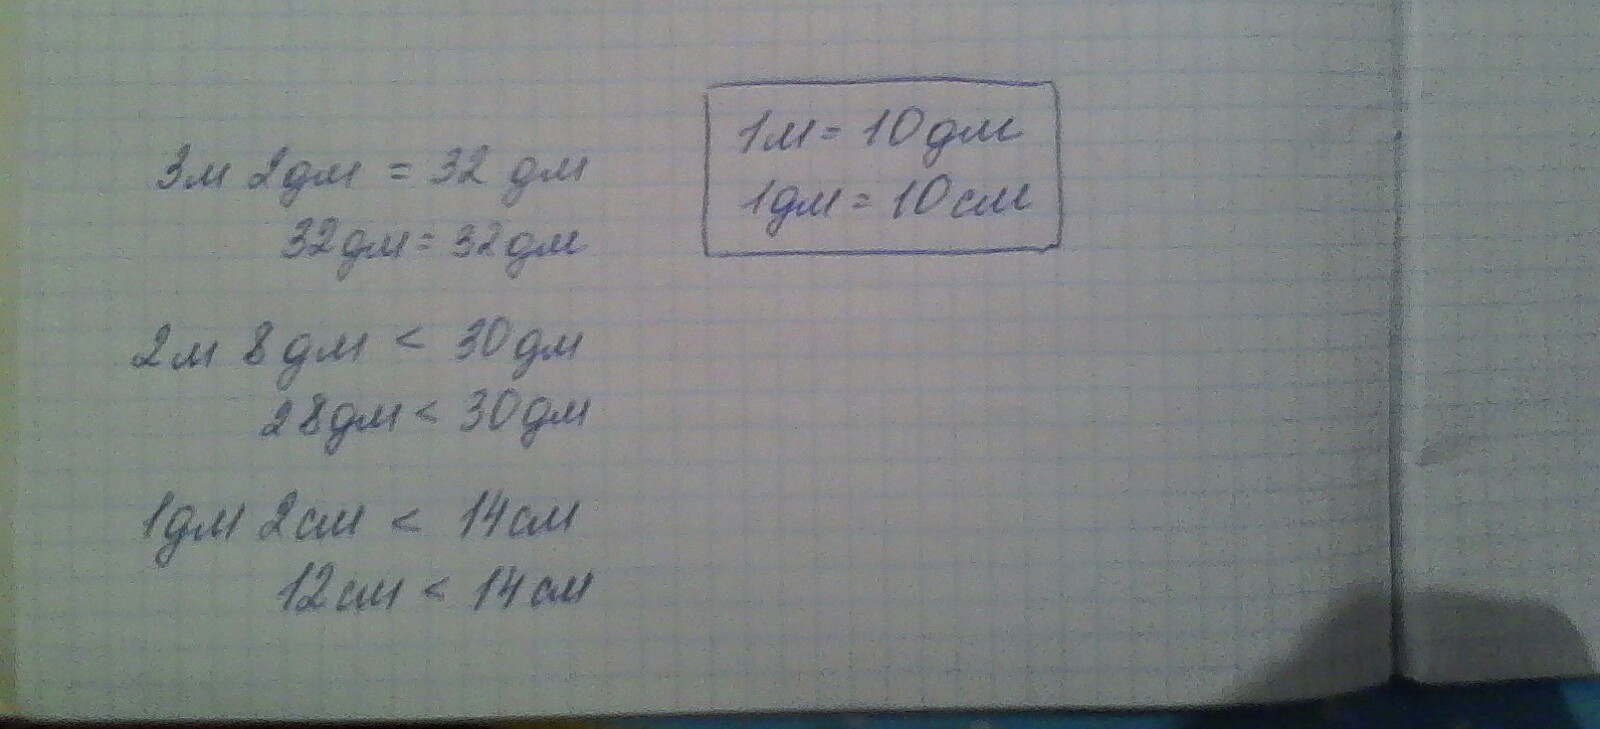 3м 2дм = 32 дм
32дм = 32дм
2м 8дм < 30дм
28дм < 30дм
1дм 2см < 14см
12см < 14см
1м = 10дм
1дм = 10см